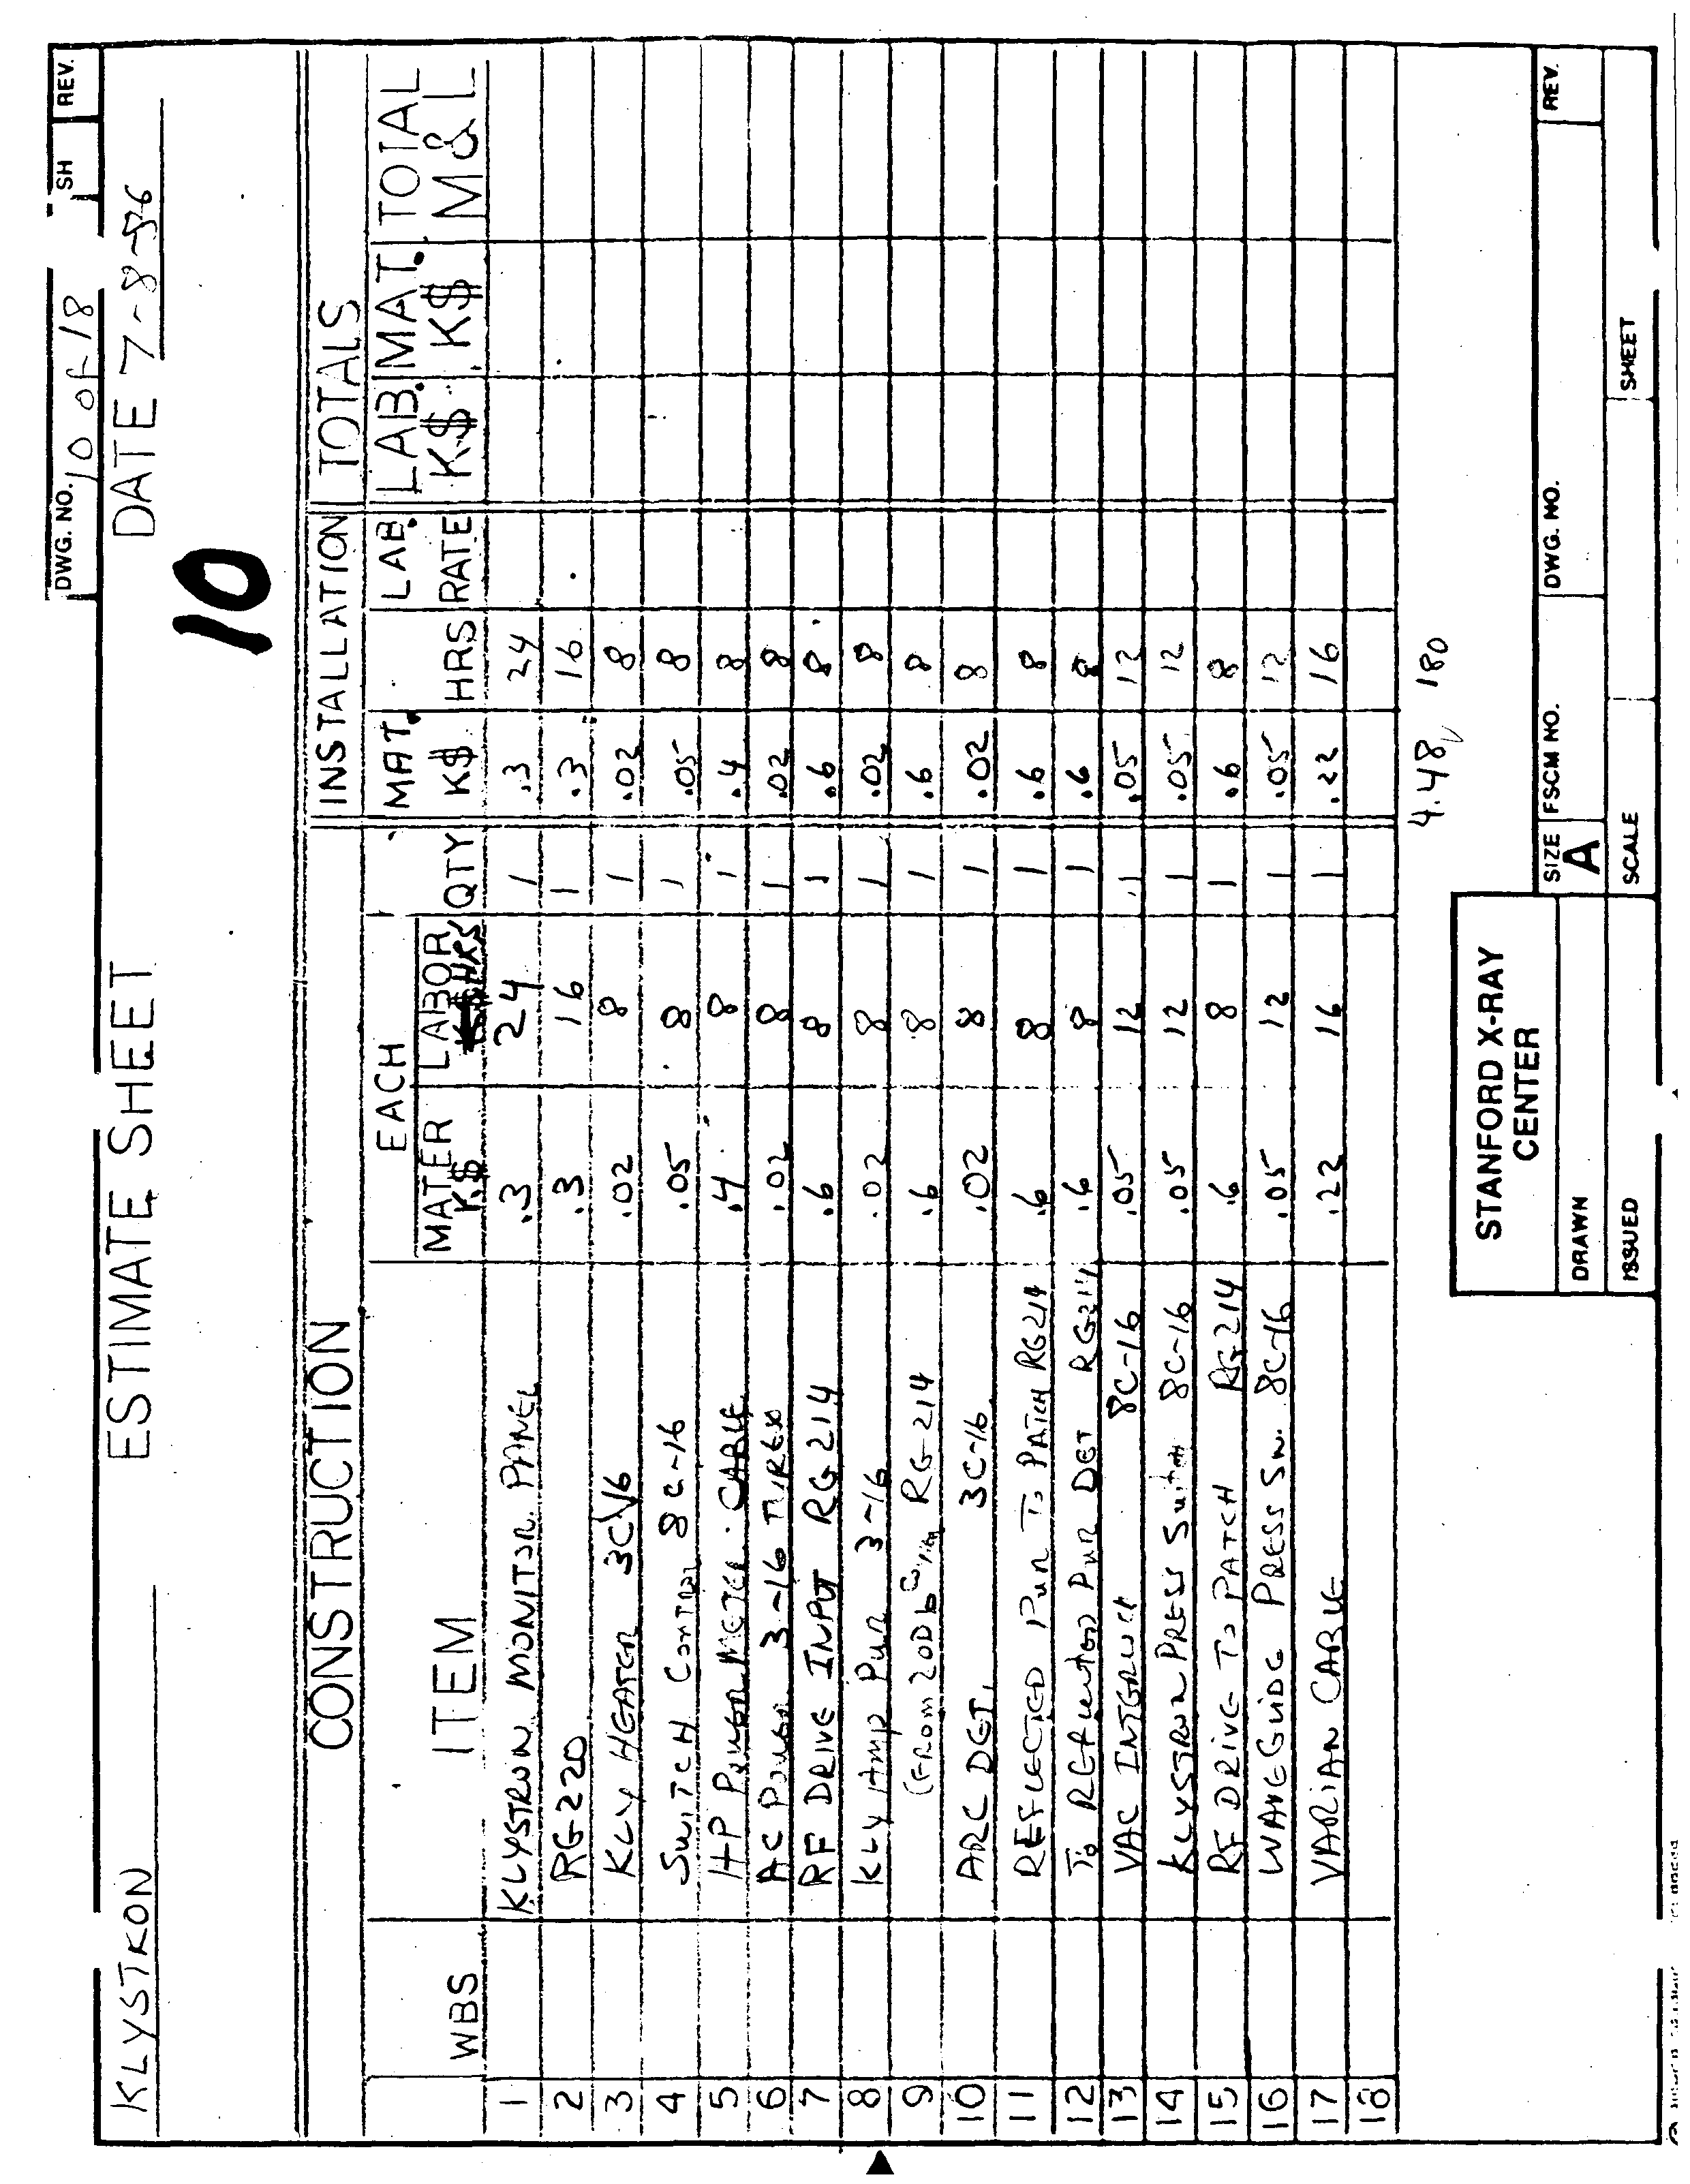 DWG. NO. 10 of 18 SH REV.
KLYSTRON ESTIMATE SHEET DATE 7-8-86
10
CONSTRUCTION INSTALLATION TOTALS
EACH MAT. LAB. LAB. MAT. TOTAL
WBS ITEM MATER K$ LABOR HRS QTY K$ HRS RATE K$ K$ M & L
1 KLYSTRON MONITOR PANEL .3 24 1 .3 24
2 RG220 .3 16 1 .3 16
3 KLY HEATER 3C-16 .02 8 1 .02 8
4 SWITCH CONTROL 8C-16 .05 8 1 .05 8
5 HP POWER METER CABLE .4 8 1 .4 8
6 AC POWER 3-16 TIREX .02 8 1 .02 8
7 RF DRIVE INPUT RG214 .6 8 1 .6 8
8 KLY AMP PWR 3-16 .02 8 1 .02 8
9 (FROM 20Db RG-214 .6 8 1 .6 8
10 ARC DET. 3C-16 .02 8 1 .02 8
11 REFLECTED PWR TO PATCH RG214 .6 8 1 .6 8
12 TO REFLECTED PWR DET RG214 .6 8 1 .6 8
13 VAC INTERLOCK 8C-16 .05 12 1 .05 12
14 KLYSTRON PRESS SWITCH 8C-16 .05 12 1 .05 12
15 RF DRIVE TO PATCH RG214 .6 8 1 .6 8
16 WAVEGUIDE PRESS SW. 8C-16 .05 12 1 .05 12
17 VARIAN CABLE .22 16 1 .22 16
18
4.48 180
STANFORD X-RAY
CENTER
SIZE A FSCM NO. DWG. NO. REV.
DRAWN
ISSUED SCALE SHEET